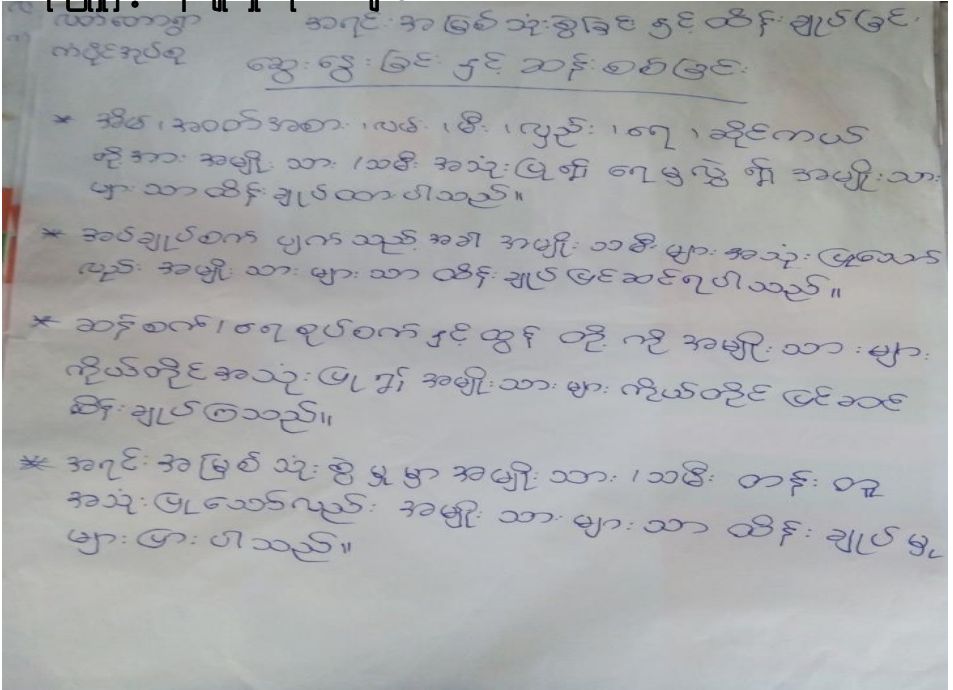 လတ်တောရွာ အရင်းအမြစ်သုံးစွဲခြင်း နှင့် ထိန်းချုပ်ခြင်း
ကံပိုင်အုပ်စု ဆွေးနွေးခြင်း နှင့် ဆန်းစစ်ခြင်း
* အိမ်၊ အဝတ်အစား၊ လမ်း၊ မီး၊ လှည်း၊ ရေ၊ ဆိုင်ကယ်
တို့အား အမျိုးသား/သမီး အသုံးပြု၍ ရေမှလွဲ၍ အမျိုးသား
များသာ ထိန်းချုပ်ထားပါသည်။
* အပ်ချုပ်စက် ပျက်သည့်အခါ အမျိုးသမီးများအသုံးပြုသော်
လည်း အမျိုးသားများသာ ထိန်းချုပ်ပြင်ဆင်ရပါသည်။
* ဆန်စက်၊ ရေစုပ်စက်နှင့်ထွန် တို့ကို အမျိုးသားများ
ကိုယ်တိုင်အသုံးပြု၍ အမျိုးသားများ ကိုယ်တိုင် ပြင်ဆင်
ထိန်းချုပ်ကြသည်။
* အရင်းအမြစ်သုံးစွဲမှုမှာ အမျိုးသား/သမီး တန်းတူ
အသုံးပြုသော်လည်း အမျိုးသားများသာ ထိန်းချုပ်မှု
များပြားပါသည်။